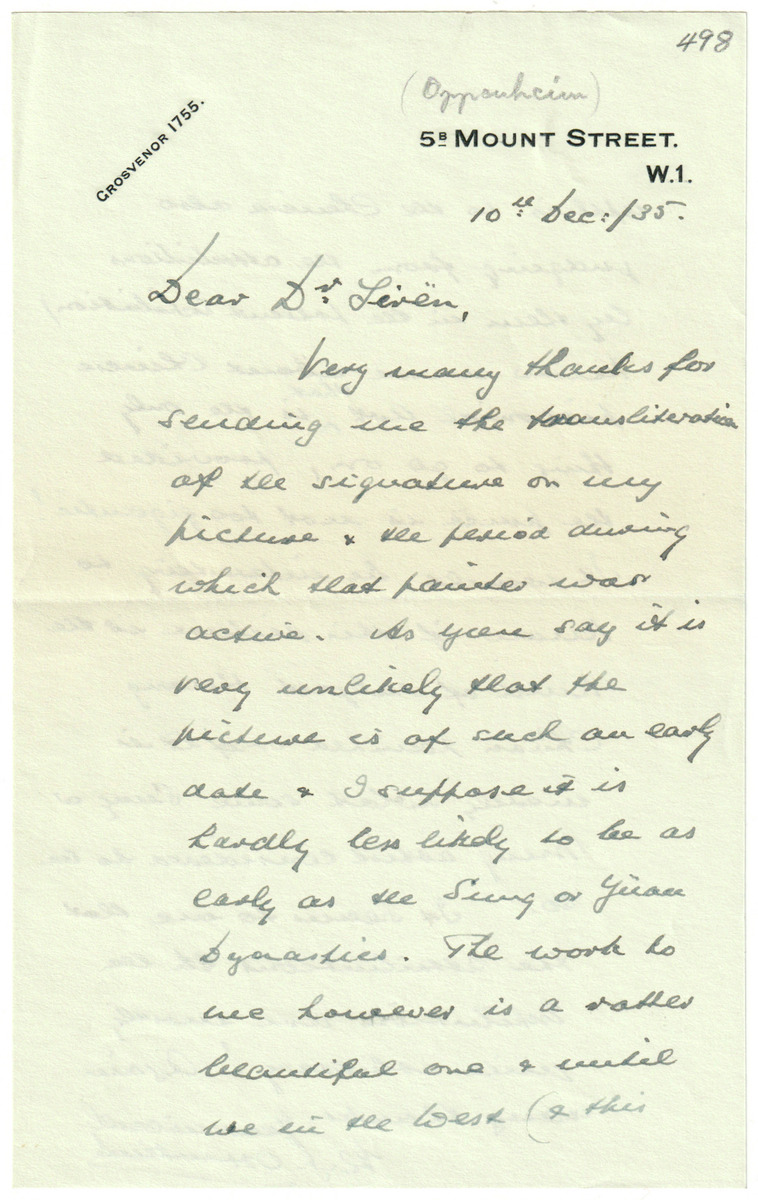 498
(Oppenheim)
GROSVENOR 1755.
5B MOUNT STREET.
W.1.
10th Dec:/35.
Dear Dr. Sirën,
Very many thanks for
sending me the transliteration
of the signature on my
picture & the period during
which that painter was
active. As you say it is
very unlikely that the
picture is of such an early
date & I suppose it is
hardly less likely to be as
early as the Sung or Yüan
Dynasties. The work to
me however is a rather
beautiful one & until
we in the West (& this